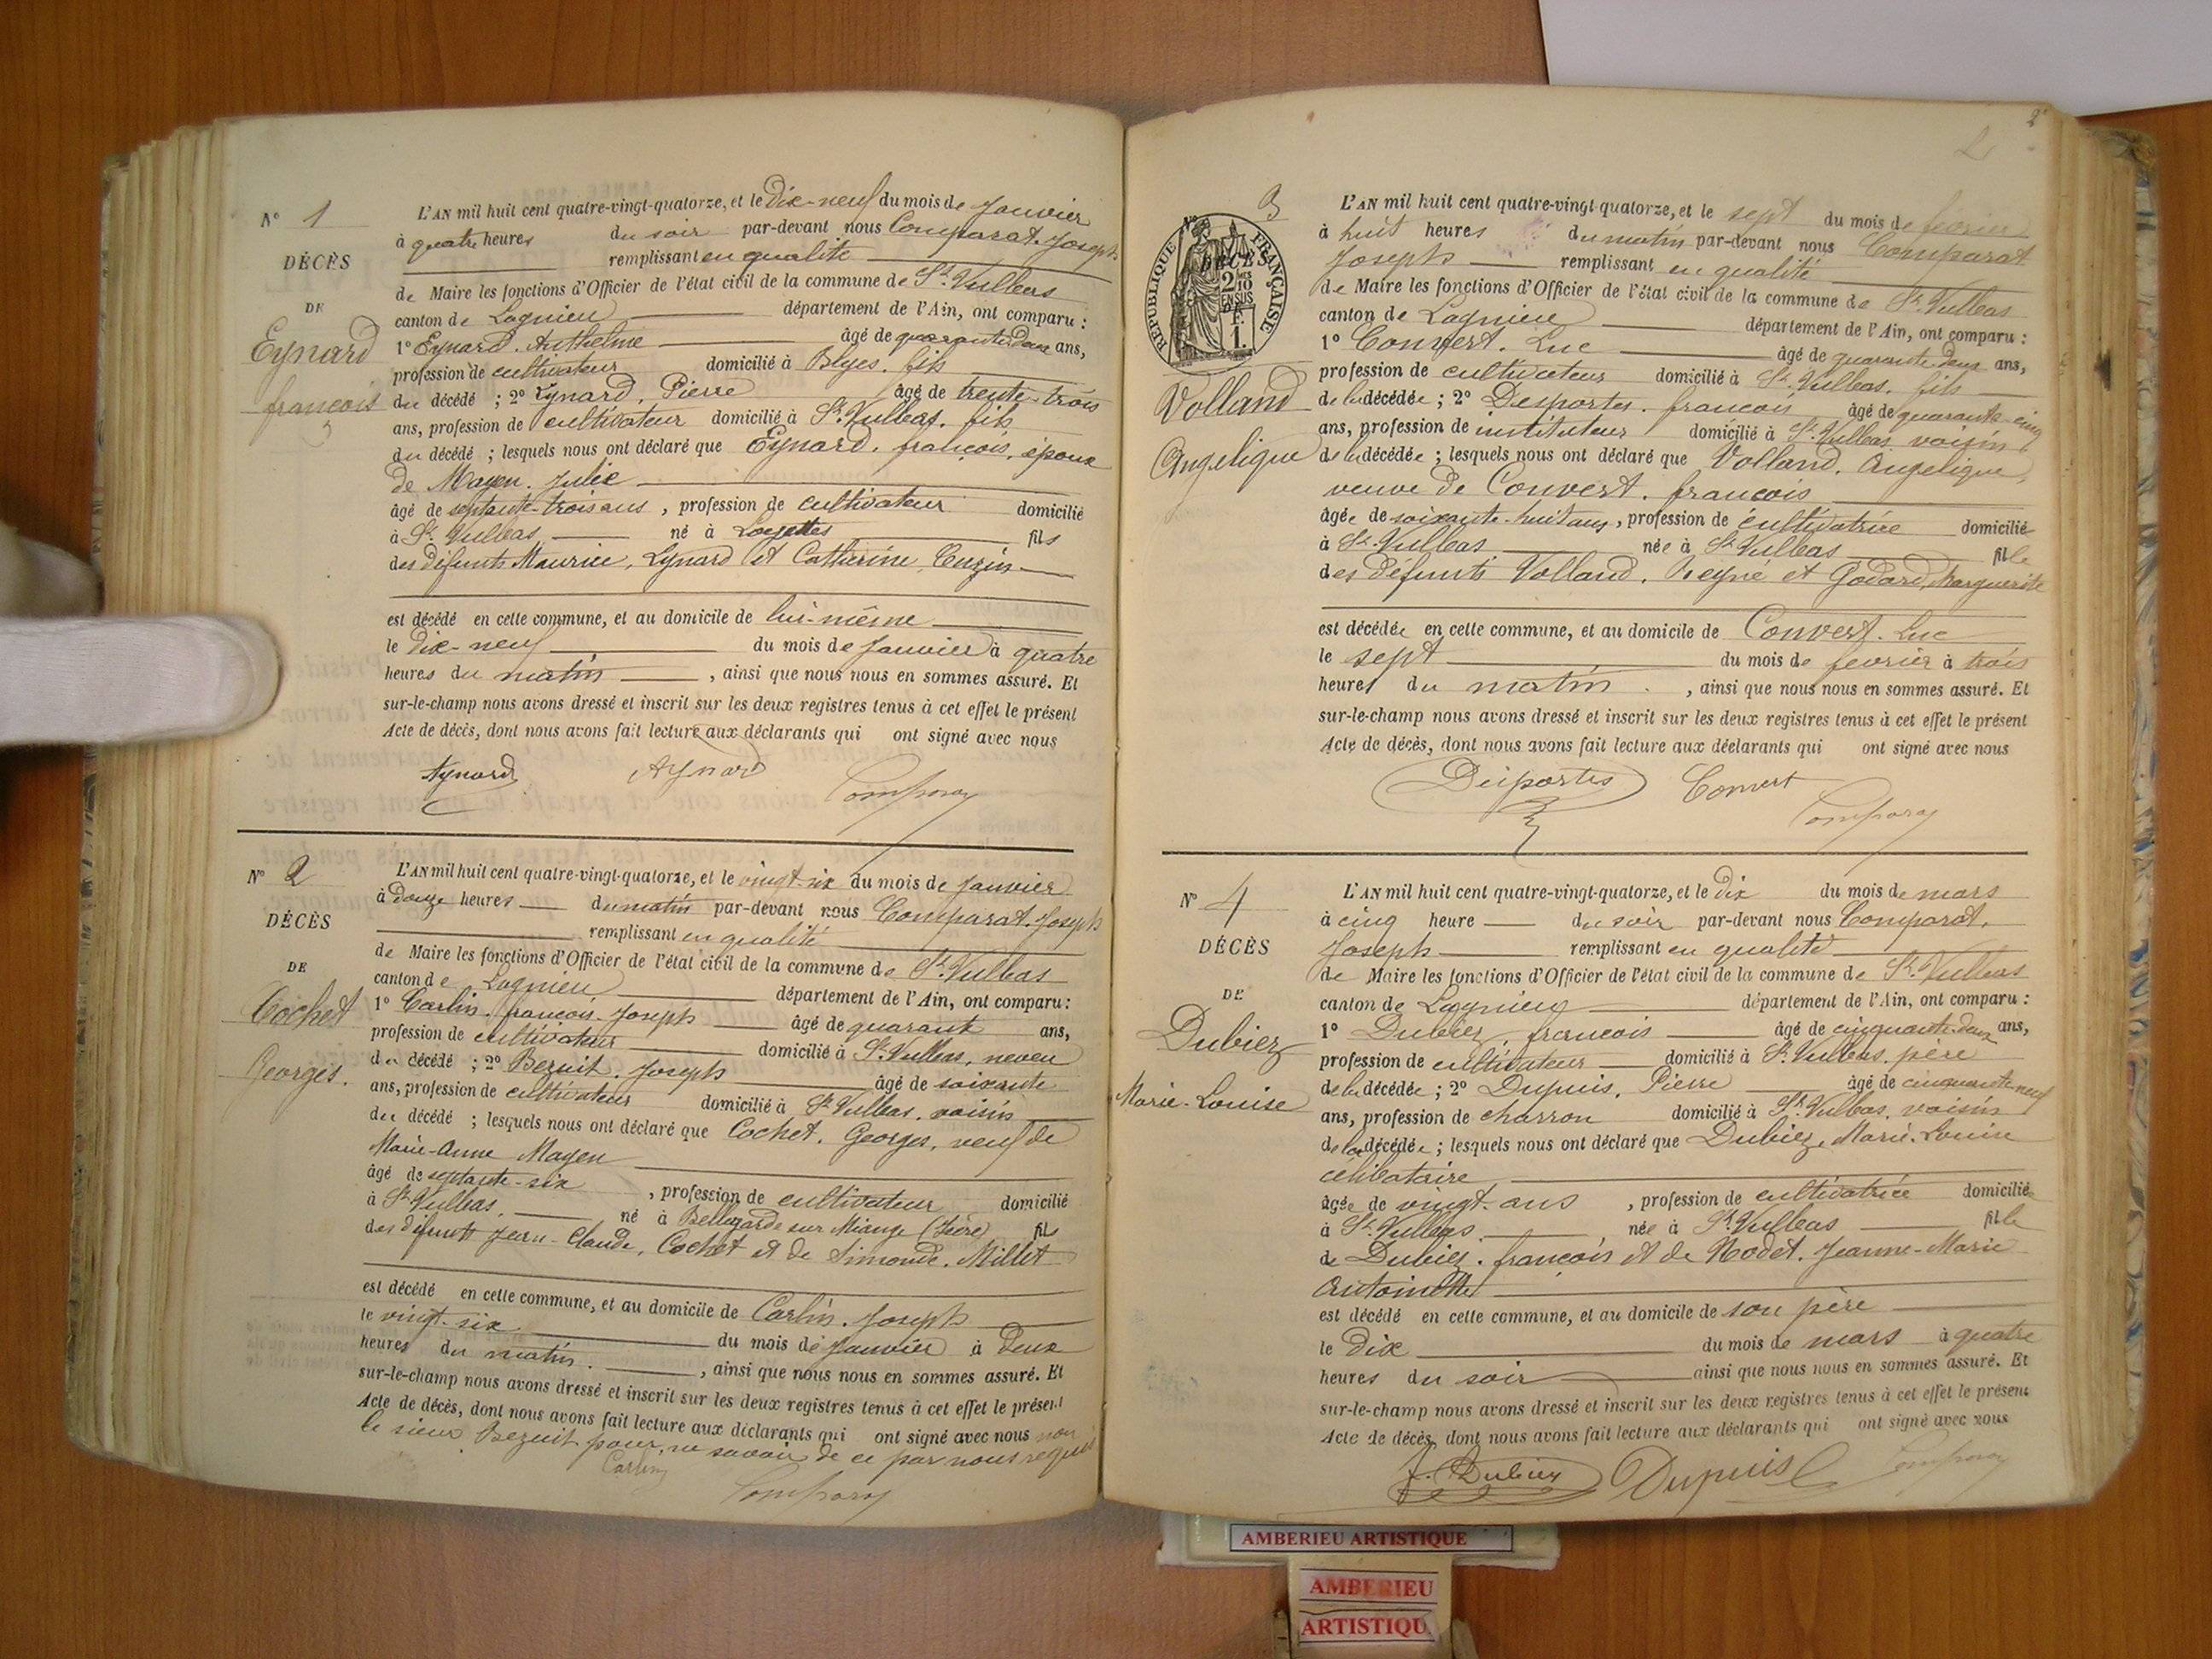 N° 1
DÉCÈS
DE
Eynard
françois
L'AN mil huit cent quatre-vingt-quatorze, et le Dix-neuf du mois de Janvier
à quatre heures du soir par-devant nous Comparat. Joseph
remplissant en qualité
de Maire les fonctions d'Officier de l'état civil de la commune de St Vulbas
canton de Lagnieu département de l'Ain, ont comparu :
1° Eynard. Anthelme âgé de quarante deux ans,
profession de cultivateur domicilié à Blyes. fils
du décédé ; 2° Eynard, Pierre âgé de trente-trois
ans, profession de cultivateur domicilié à St Vulbas. fils
du décédé ; lesquels nous ont déclaré que Eynard. françois, époux
de Mayen. Julie
âgé de septante-trois ans, profession de cultivateur domicilié
à St Vulbas né à Loyettes fils
des défunts Maurice, Eynard et Catherine, Cuzin
est décédé en cette commune, et au domicile de lui-même
le Dix-neuf du mois de Janvier à quatre
heures du matin, ainsi que nous nous en sommes assuré. Et
sur-le-champ nous avons dressé et inscrit sur les deux registres tenus à cet effet le présent
Acte de décès, dont nous avons fait lecture aux déclarants qui ont signé avec nous
Aynard Aynard Comparat
N° 2
DÉCÈS
DE
Cochet
Georges.
L'AN mil huit cent quatre-vingt-quatorze, et le vingt-six du mois de Janvier
à douze heures du matin par-devant nous Comparat. Joseph
remplissant en qualité
de Maire les fonctions d'Officier de l'état civil de la commune de St Vulbas
canton de Lagnieu département de l'Ain, ont comparu :
1° Carlin. françois-Joseph âgé de quarante ans,
profession de cultivateur domicilié à St Vulbas, neveu
du décédé ; 2° Bezuit. Joseph âgé de soixante
ans, profession de cultivateur domicilié à St Vulbas. voisin
du décédé ; lesquels nous ont déclaré que Cochet. Georges, veuf de
Marie-Anne Mayen
âgé de septante-six, profession de cultivateur domicilié
à St Vulbas. né à Bellegarde sur Miange (Isère) fils
des défunts Jean-Claude, Cochet et de Simonde. Millet
est décédé en cette commune, et au domicile de Carlin. Joseph
le vingt-six du mois de Janvier à Deux
heures du matin., ainsi que nous nous en sommes assuré. Et
sur-le-champ nous avons dressé et inscrit sur les deux registres tenus à cet effet le présent
Acte de décès, dont nous avons fait lecture aux déclarants qui ont signé avec nous non
le sieur Bezuit pour ne savoir de ce par nous requis
Carlin Comparat
2
3
RÉPUBLIQUE FRANÇAISE
DÉCÈS
2/10 EN SUS
F.
1.
Volland
Angelique
L'AN mil huit cent quatre-vingt-quatorze, et le sept du mois de fevrier
à huit heures du matin par-devant nous Comparat
Joseph remplissant en qualité
de Maire les fonctions d'Officier de l'état civil de la commune de St Vulbas
canton de Lagnieu département de l'Ain, ont comparu :
1° Convert. Luc âgé de quarante deux ans,
profession de cultivateur domicilié à St Vulbas. fils
de la décédée ; 2° Desportes. françois âgé de quarante-cinq
ans, profession de instituteur domicilié à St Vulbas voisin
de la décédée ; lesquels nous ont déclaré que Volland. Angelique,
veuve de Convert. françois
âgée de soixante-huit ans, profession de cultivatrice domicilié
à St Vulbas née à St Vulbas fille
des défunts Volland. Reyné et Godard, Marguerite
est décédée en cette commune, et au domicile de Convert. Luc
le sept du mois de fevrier à trois
heures du matin., ainsi que nous nous en sommes assuré. Et
sur-le-champ nous avons dressé et inscrit sur les deux registres tenus à cet effet le présent
Acte de décès, dont nous avons fait lecture aux déclarants qui ont signé avec nous
Desportes Convert Comparat
N° 4
DÉCÈS
DE
Dubiez
Marie-Louise
L'AN mil huit cent quatre-vingt-quatorze, et le Dix du mois de mars
à cinq heure du soir par-devant nous Comparat.
Joseph remplissant en qualité
de Maire les fonctions d'Officier de l'état civil de la commune de St Vulbas
canton de Lagnieu département de l'Ain, ont comparu :
1° Dubiez, françois âgé de cinquante-deux ans,
profession de cultivateur domicilié à St Vulbas. père
de la décédée ; 2° Dupuis, Pierre âgé de cinquante-neuf
ans, profession de charron domicilié à St Vulbas. voisin
de la décédée ; lesquels nous ont déclaré que Dubiez, Marie-Louise
célibataire
âgée de vingt-ans, profession de cultivatrice domicilié
à St Vulbas. née à St Vulbas fille
de Dubiez. françois et de Nodet. Jeanne-Marie
Antoinette
est décédé en cette commune, et au domicile de son père
le Dix du mois de mars à quatre
heures du soir ainsi que nous nous en sommes assuré. Et
sur-le-champ nous avons dressé et inscrit sur les deux registres tenus à cet effet le présent
Acte de décès, dont nous avons fait lecture aux déclarants qui ont signé avec nous
F. Dubiez Dupuis Comparat
AMBERIEU ARTISTIQUE
AMBERIEU
ARTISTIQU